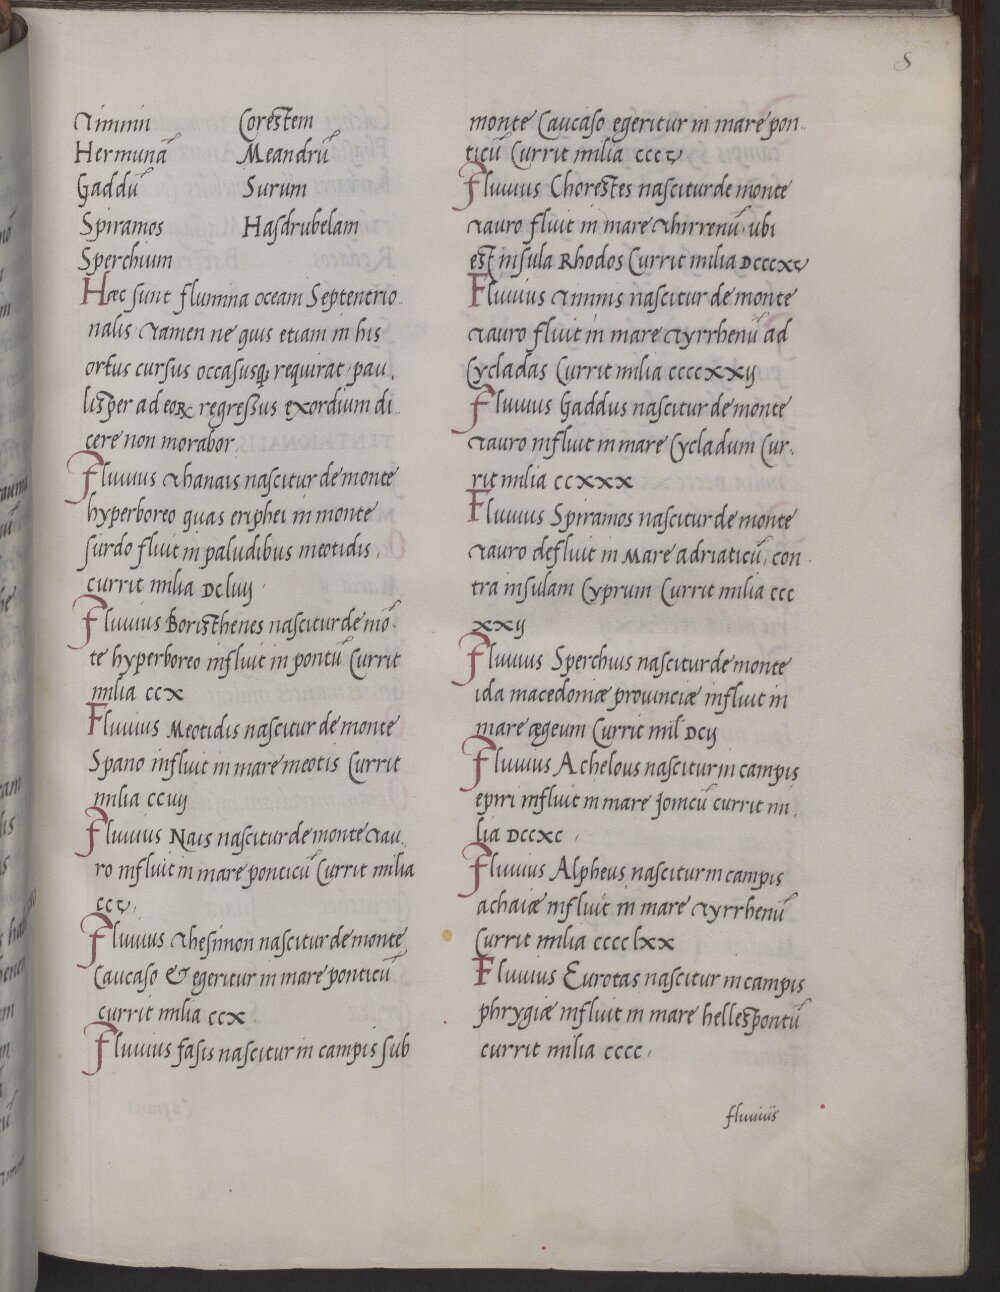 8
Timnii Corestem
Hermunā Meandrū
Gaddū Surum
Spiramos Hasdrubelam
Sperchium
Hæc sunt flumina oceani Septentrio
nalis Tamen ne quis etiam in his
ortus cursus occasusq; requirat, pau
lisper ad eoꝝ regressus exordium di
cere non morabor.
Fluuius Thanais nascitur de monte
hyperboreo quas eriphei in monte
surdo fluit in paludibus meotidis,
currit milia DCliiij
Fluuius Boristhenes nascitur de mō
te hyperboreo influit in pontū Currit
milia CCX
Fluuius Meotidis nascitur de monte
Spano influit in mare meotis Currit
milia CCiiij
Fluuius Nais nascitur de monte Tau
ro influit in mare ponticū Currit milia
CCV,
Fluuius Thesinon nascitur de monte
Caucaso & egeritur in mare ponticū
currit milia CCX
Fluuius fasis nascitur in campis sub
monte Caucaso egeritur in mare pon
ticū Currit milia CCCV
Fluuius Chorestes nascitur de monte
Tauro fluit in mare Thirrenū, ubi
est insula Rhodos Currit milia DCCCXV
Fluuius Timnis nascitur de monte
Tauro fluit in mare Tyrrhenū ad
Cycladas Currit milia CCCCXXij
Fluuius Gaddus nascitur de monte
Tauro influit in mare Cycladum Cur-
rit milia CCXXX
Fluuius Spiramos nascitur de monte
Tauro defluit in Mare adriaticū, con
tra insulam Cyprum Currit milia CCC
XXij
Fluuius Sperchius nascitur de monte
ida macedoniæ prouinciæ influit in
mare ægeum Currit mil DCij
Fluuius Achelous nascitur in campis
epiri influit in mare Jonicū currit mi
lia DCCXC,
Fluuius Alpheus nascitur in campis
achaiæ influit in mare Tyrrhenū
Currit milia CCCClXX
Fluuius Eurotas nascitur in campis
phrygiæ influit in mare hellespontū
currit milia CCCC,
fluuius